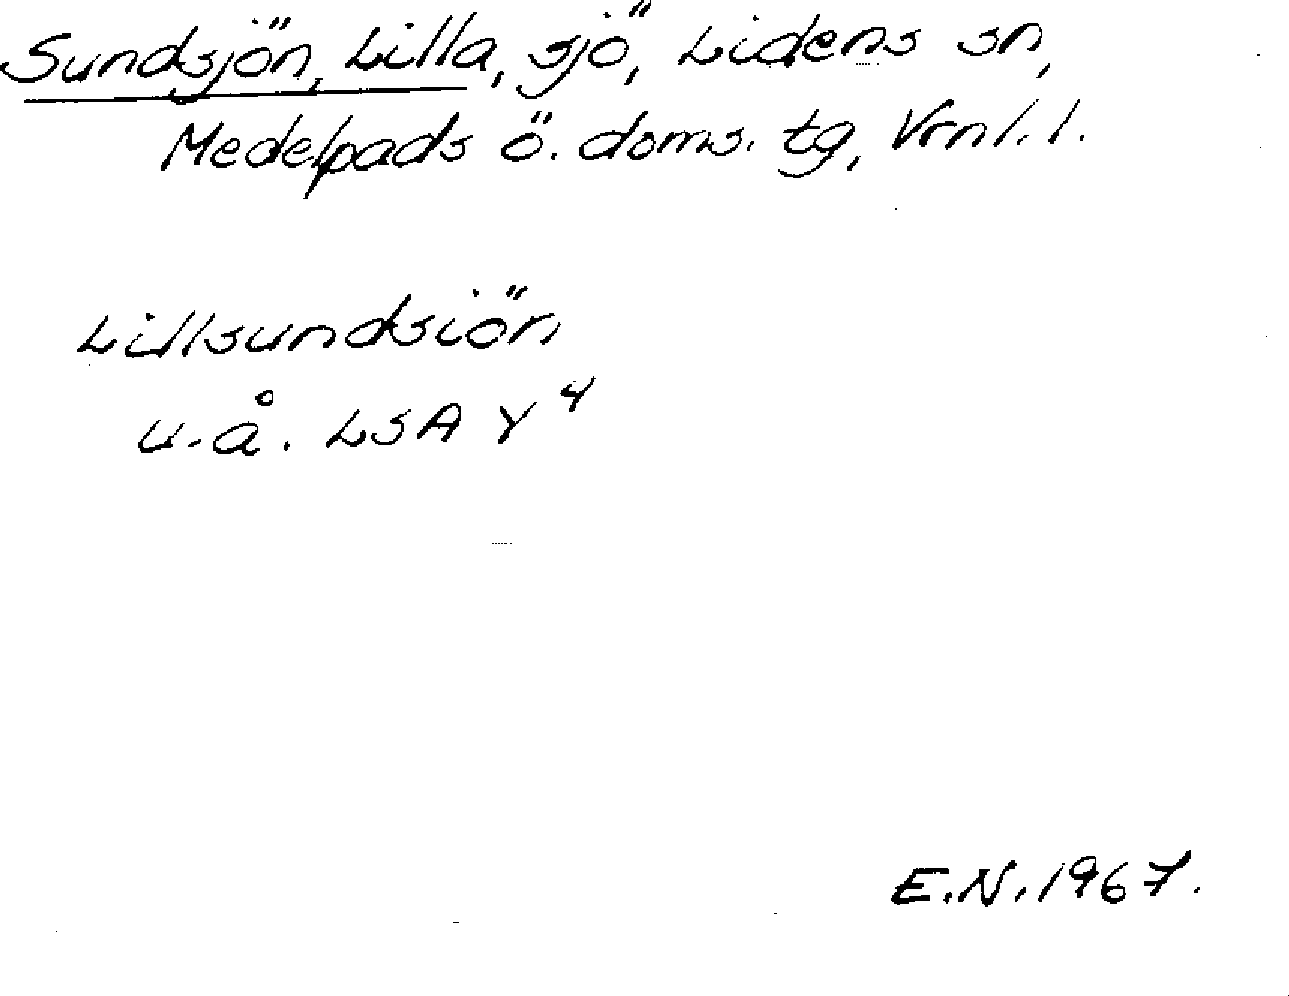 Sundsjön, Lilla, sjö, Lidens sn,
Medelpads ö. doms. tg, Vrnl. l.
Lillsundsiön
u.å. LSA Y 4
E.N. 1967.